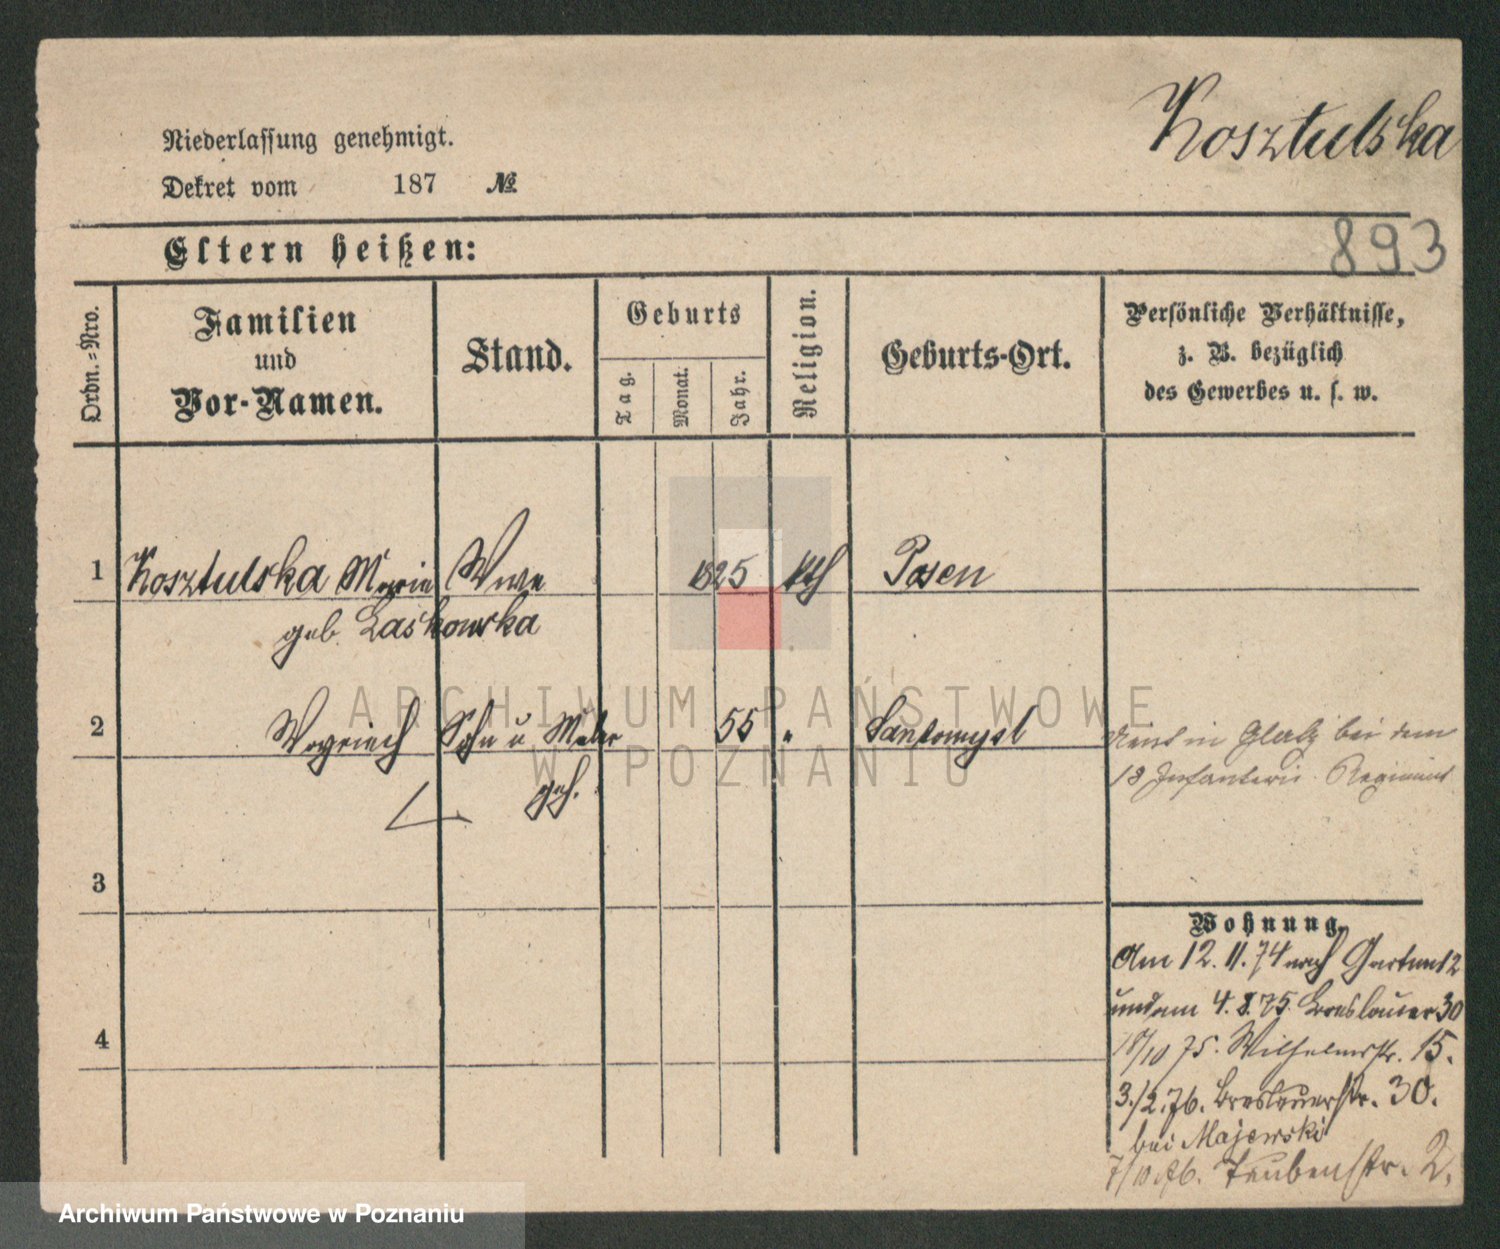 Kosztulska
Niederlassung genehmigt.
Dekret vom 187 №
893
Eltern heißen:
Ordn.-Nro.
Familien
und
Vor-Namen.
Stand.
Geburts
Tag.
Monat.
Jahr.
Religion.
Geburts-Ort.
Persönliche Verhältnisse,
z. B. bezüglich
des Gewerbes u. s. w.
1 Kosztulska Marie Wwe 1825 kth Posen
geb. Laskowska
2 Sohn u. Maler 55 " Santomysl
geh.
in Glatz bei dem
18 Infanterie Regiment
3
4
Wohnung.
Am 12. 11. 74 nach Garten 12
und am 4. 8. 75. Breslauer 30
/10 75. Wilhelmstr. 15.
3./2. 76. Breslauerstr. 30.
bei Majewski
7/10.76. Taubenstr. 2.
ARCHIWUM PAŃSTWOWE
W POZNANIU
Archiwum Państwowe w Poznaniu